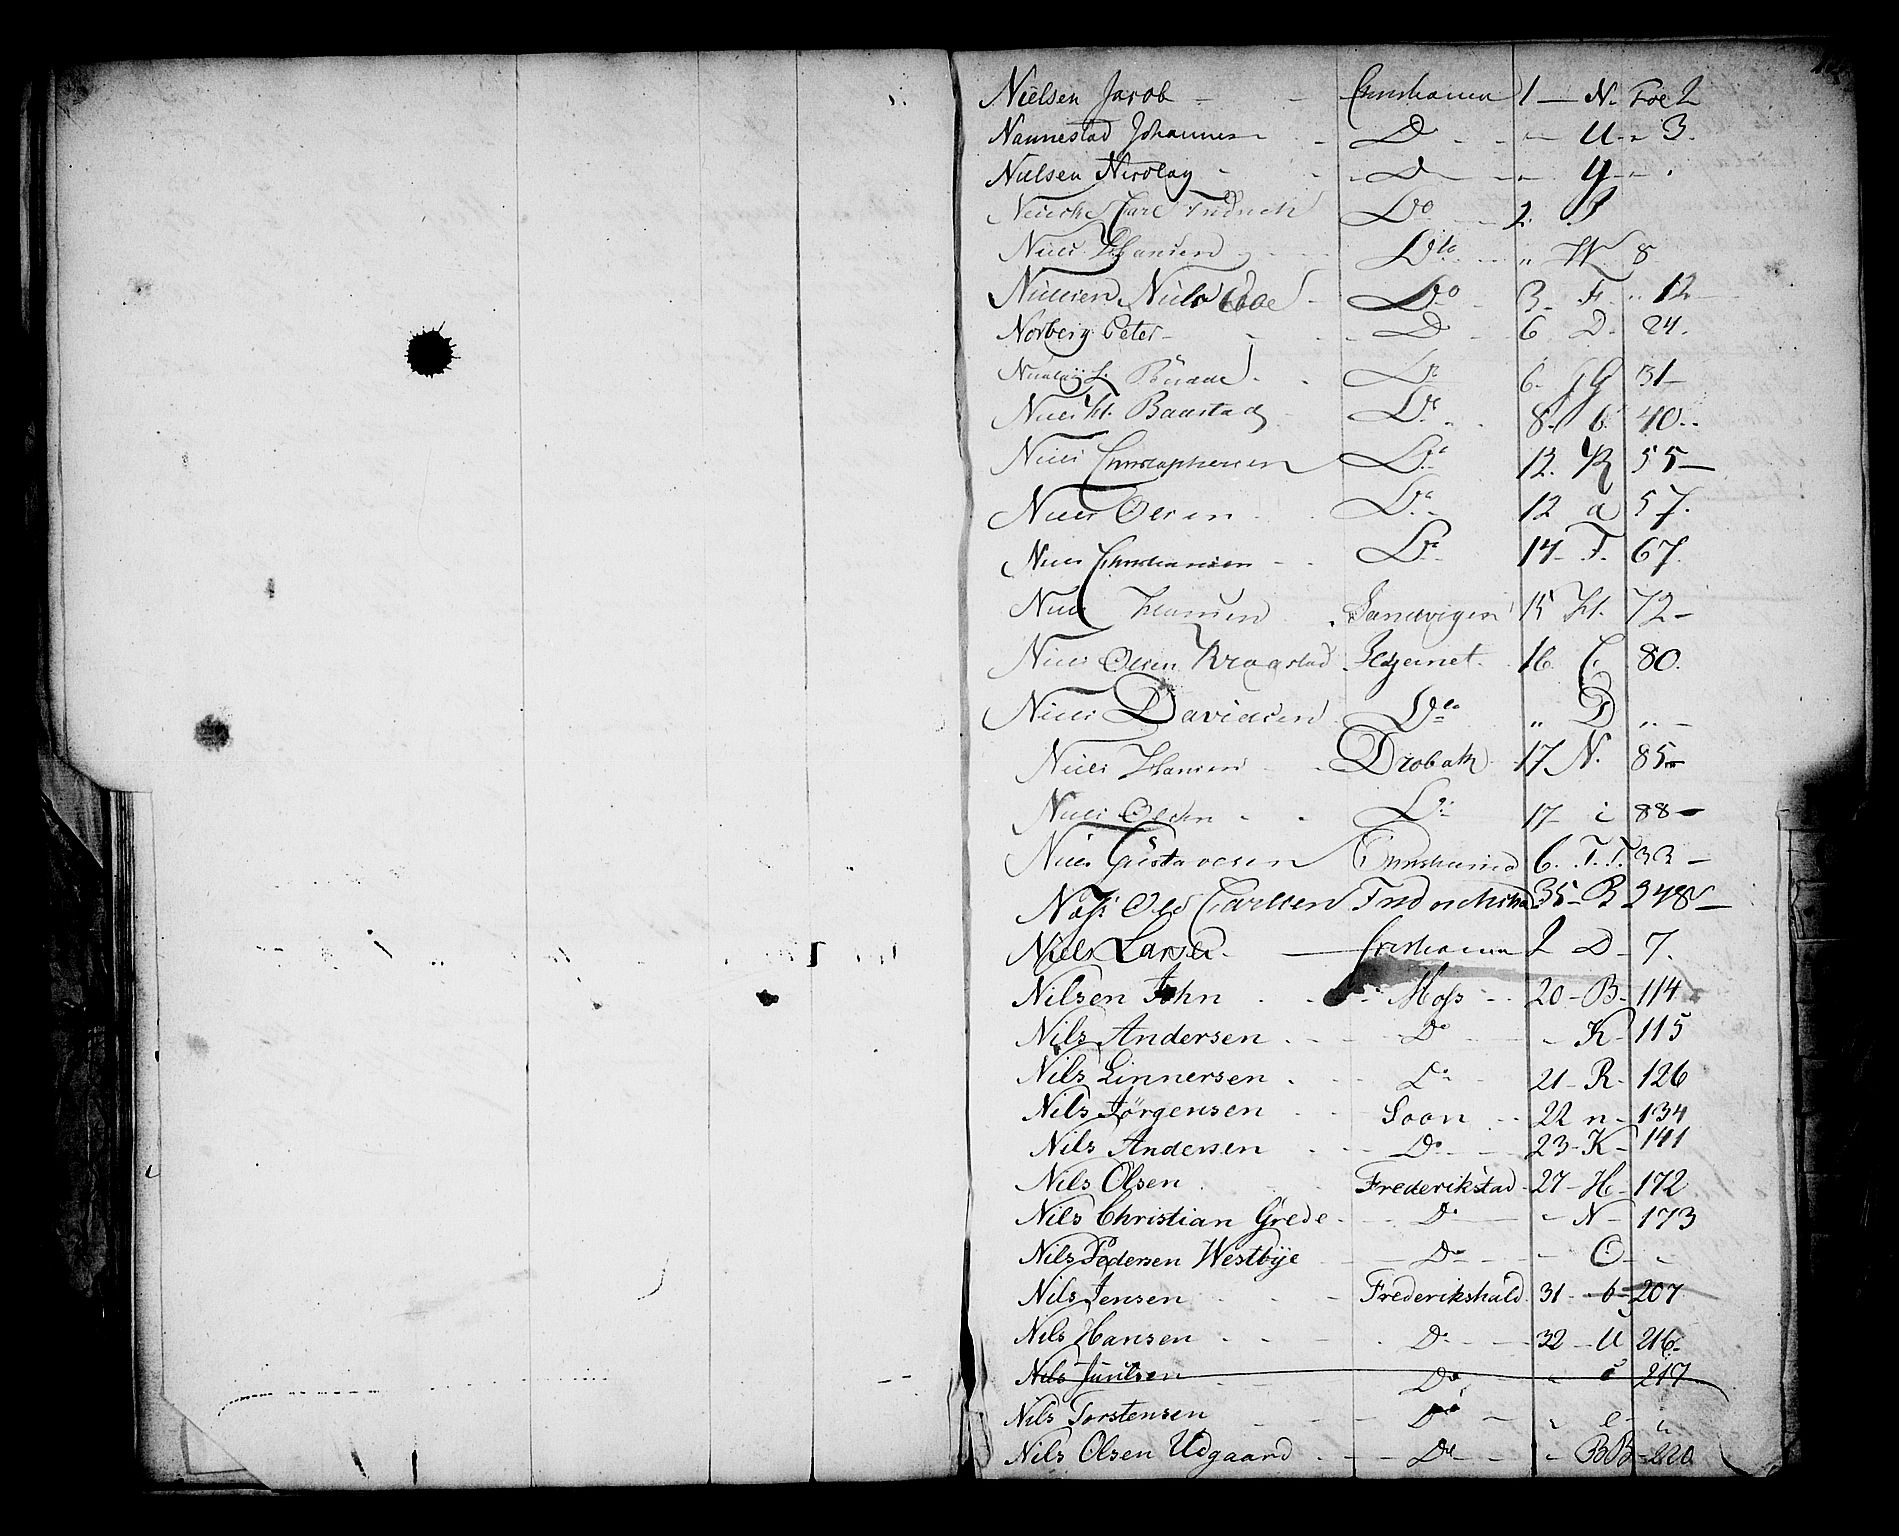 Nielsen Jacob - - Christiania 1 - N. Foe 2
Nannestad Johannes - - D - - - U - " 3.
Nielsen Nicolay - - D - - - Y - "
Carl Fridrich Do 2.
Niels Hansen Dto " W 8
Nielsen Niels - Do 3. F. " 12
Norberg Peter - - D - 6 D. 24.
Do 6. G 31 -
Niels H. Baastad Do 8. b. 40.
Niels Christophersen Do 12. R 55 -
Niels Olsen Do 12 a 57.
Niels Christiansen - Do 14 - T. 67.
Niels Hansen Sandvigen 15 H. 72 -
Niels Olsen Kragstad 16 C 80.
Niels Davidsen Dto " D " -
Niels Hansen Drobak 17 N. 85 -
Niels Olsen - - Do 17 i 88 -
Niels Gustavesen Christiania 6. T.T. 33 -
Nass Ole Carlsen Fridrichsha 35 - B 248 -
Niels Larsen - Cristiania 2 D - 7.
Nilsen John - - Moss - 20 - B - 114
Nils Andersen - - Do - K - 115
Nils Linnersen - - Do - 21 - R - 126
Nils Jörgensen - - Soon - 22 n - 134
Nils Andersen - - Do - 23 - K - 141
Nils Olsen - Frederikstad - 27 - H - 172
Nils Christian Grede - - Do - - N - 173
Nils Pedersen Westbÿe - Do - - O - "
Nils Jensen - - Frederikshald 31 - b - 207
Nils Hansen - - Do - 32 - U 216 -
Nils - Do - " 217
Nils Torstensen - - Do - " e - "
Nils Olsen Udgaard - - Do - " BB - 220